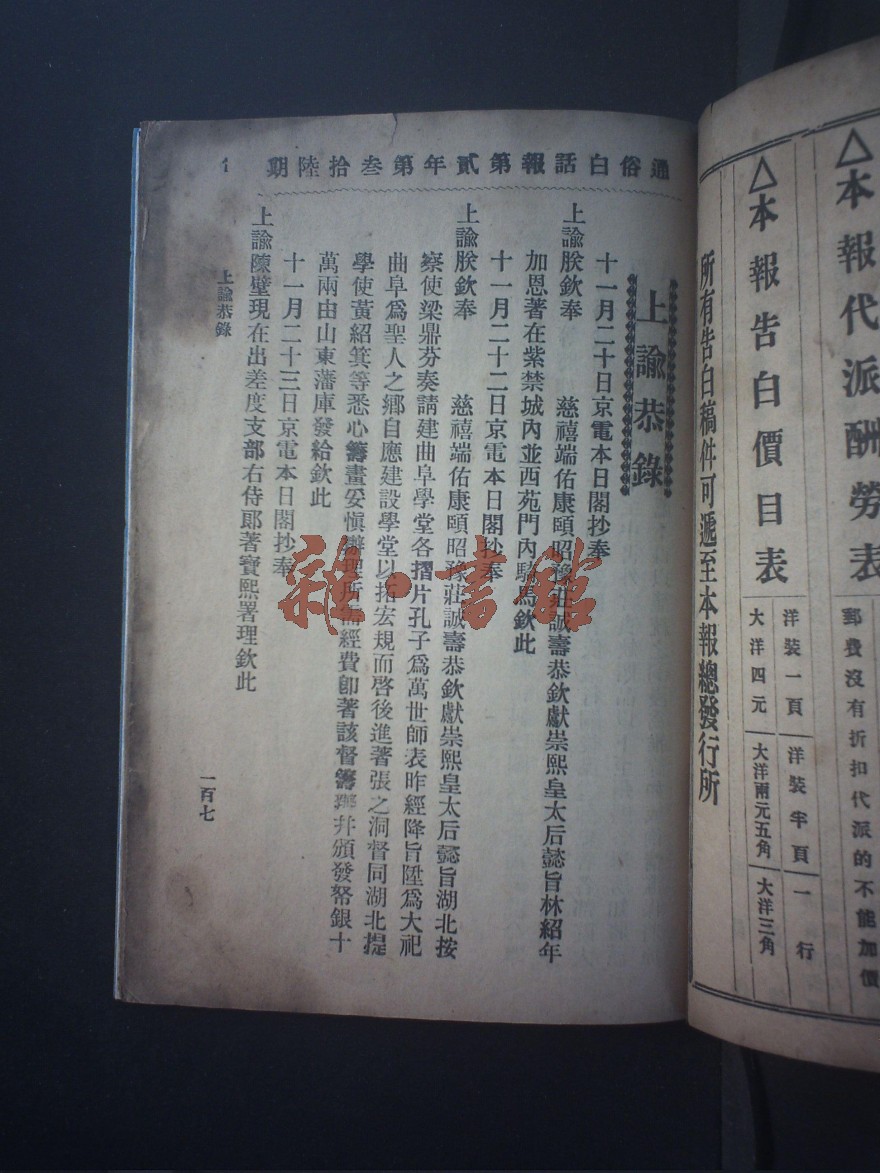 △本報代派酬勞表
郵費沒有折扣代派的不能加價
△本報告白價目表
洋裝一頁 洋裝半頁 一行
大洋四元 大洋兩元五角 大洋三角
所有告白稿件可遞至本報總發行所
通俗白話報第貳年第叁拾陸期
上諭恭錄
十一月二十日京電本日閣抄奉
上諭朕欽奉 慈禧端佑康頤昭豫莊誠壽恭欽獻崇熙皇太后懿旨林紹年
加恩著在紫禁城內並西苑門內騎馬欽此
十一月二十二日京電本日閣抄奉
上諭朕欽奉 慈禧端佑康頤昭豫莊誠壽恭欽獻崇熙皇太后懿旨湖北按
察使梁鼎芬奏請建曲阜學堂各摺片孔子爲萬世師表昨經降旨陞爲大祀
曲阜爲聖人之鄉自應建設學堂以拓宏規而啓後進著張之洞督同湖北提
學使黃紹箕等悉心籌畫妥愼辦理所需經費卽著該督籌撥幷頒發帑銀十
萬兩由山東藩庫發給欽此
十一月二十三日京電本日閣抄奉
上諭陳璧現在出差度支部右侍郎著寶熙署理欽此
上諭恭錄
一百七
雜·書館